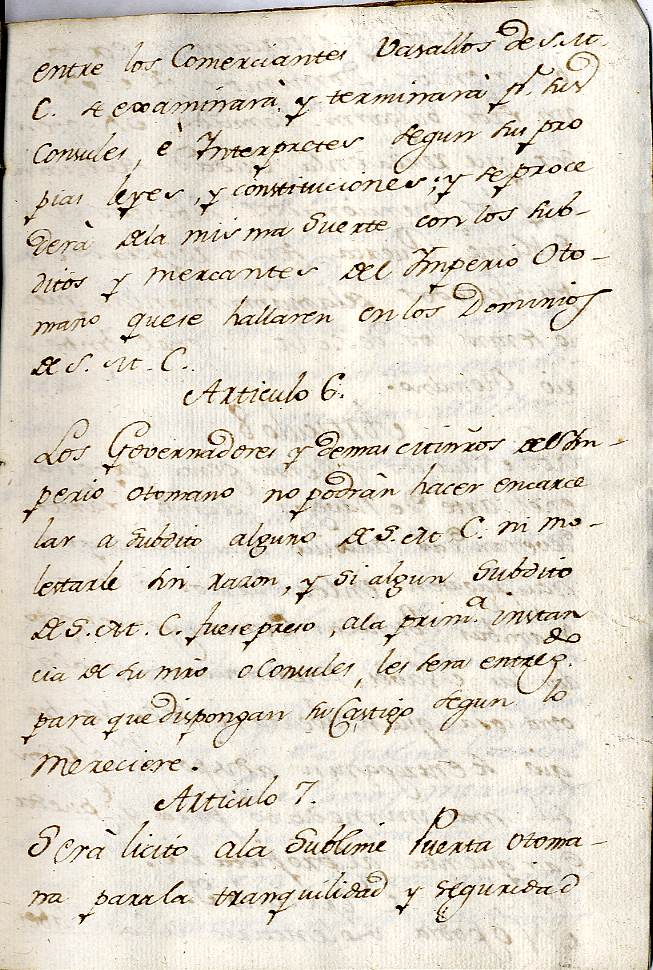 entre los Comerciantes Vasallos de S. M.
C. se examinarà, y terminarà pr. sus
Consules, è Interpretes segun sus pro
pias leyes, y constituciones; y se proce
derà de la misma suerte con los sub-
ditos y mercantes del Imperio Oto-
mano que se hallaren en los Dominios
de S. M. C.
Articulo 6.
Los Governadores y demas Minros del Im-
perio Otomano no podràn hacer encarce
lar a subdito alguno de S. M. C. ni mo-
lestarle sin razon, y si algun subdito
de S. M. C. fuese preso, a la prima. instan
cia de su mro o Consules, les sera entregdo.
para que dispongan su Castigo segun lo
mereciere.
Articulo 7.
Serà licito a la Sublime Puerta Otoma-
na para la tranquilidad y seguridad